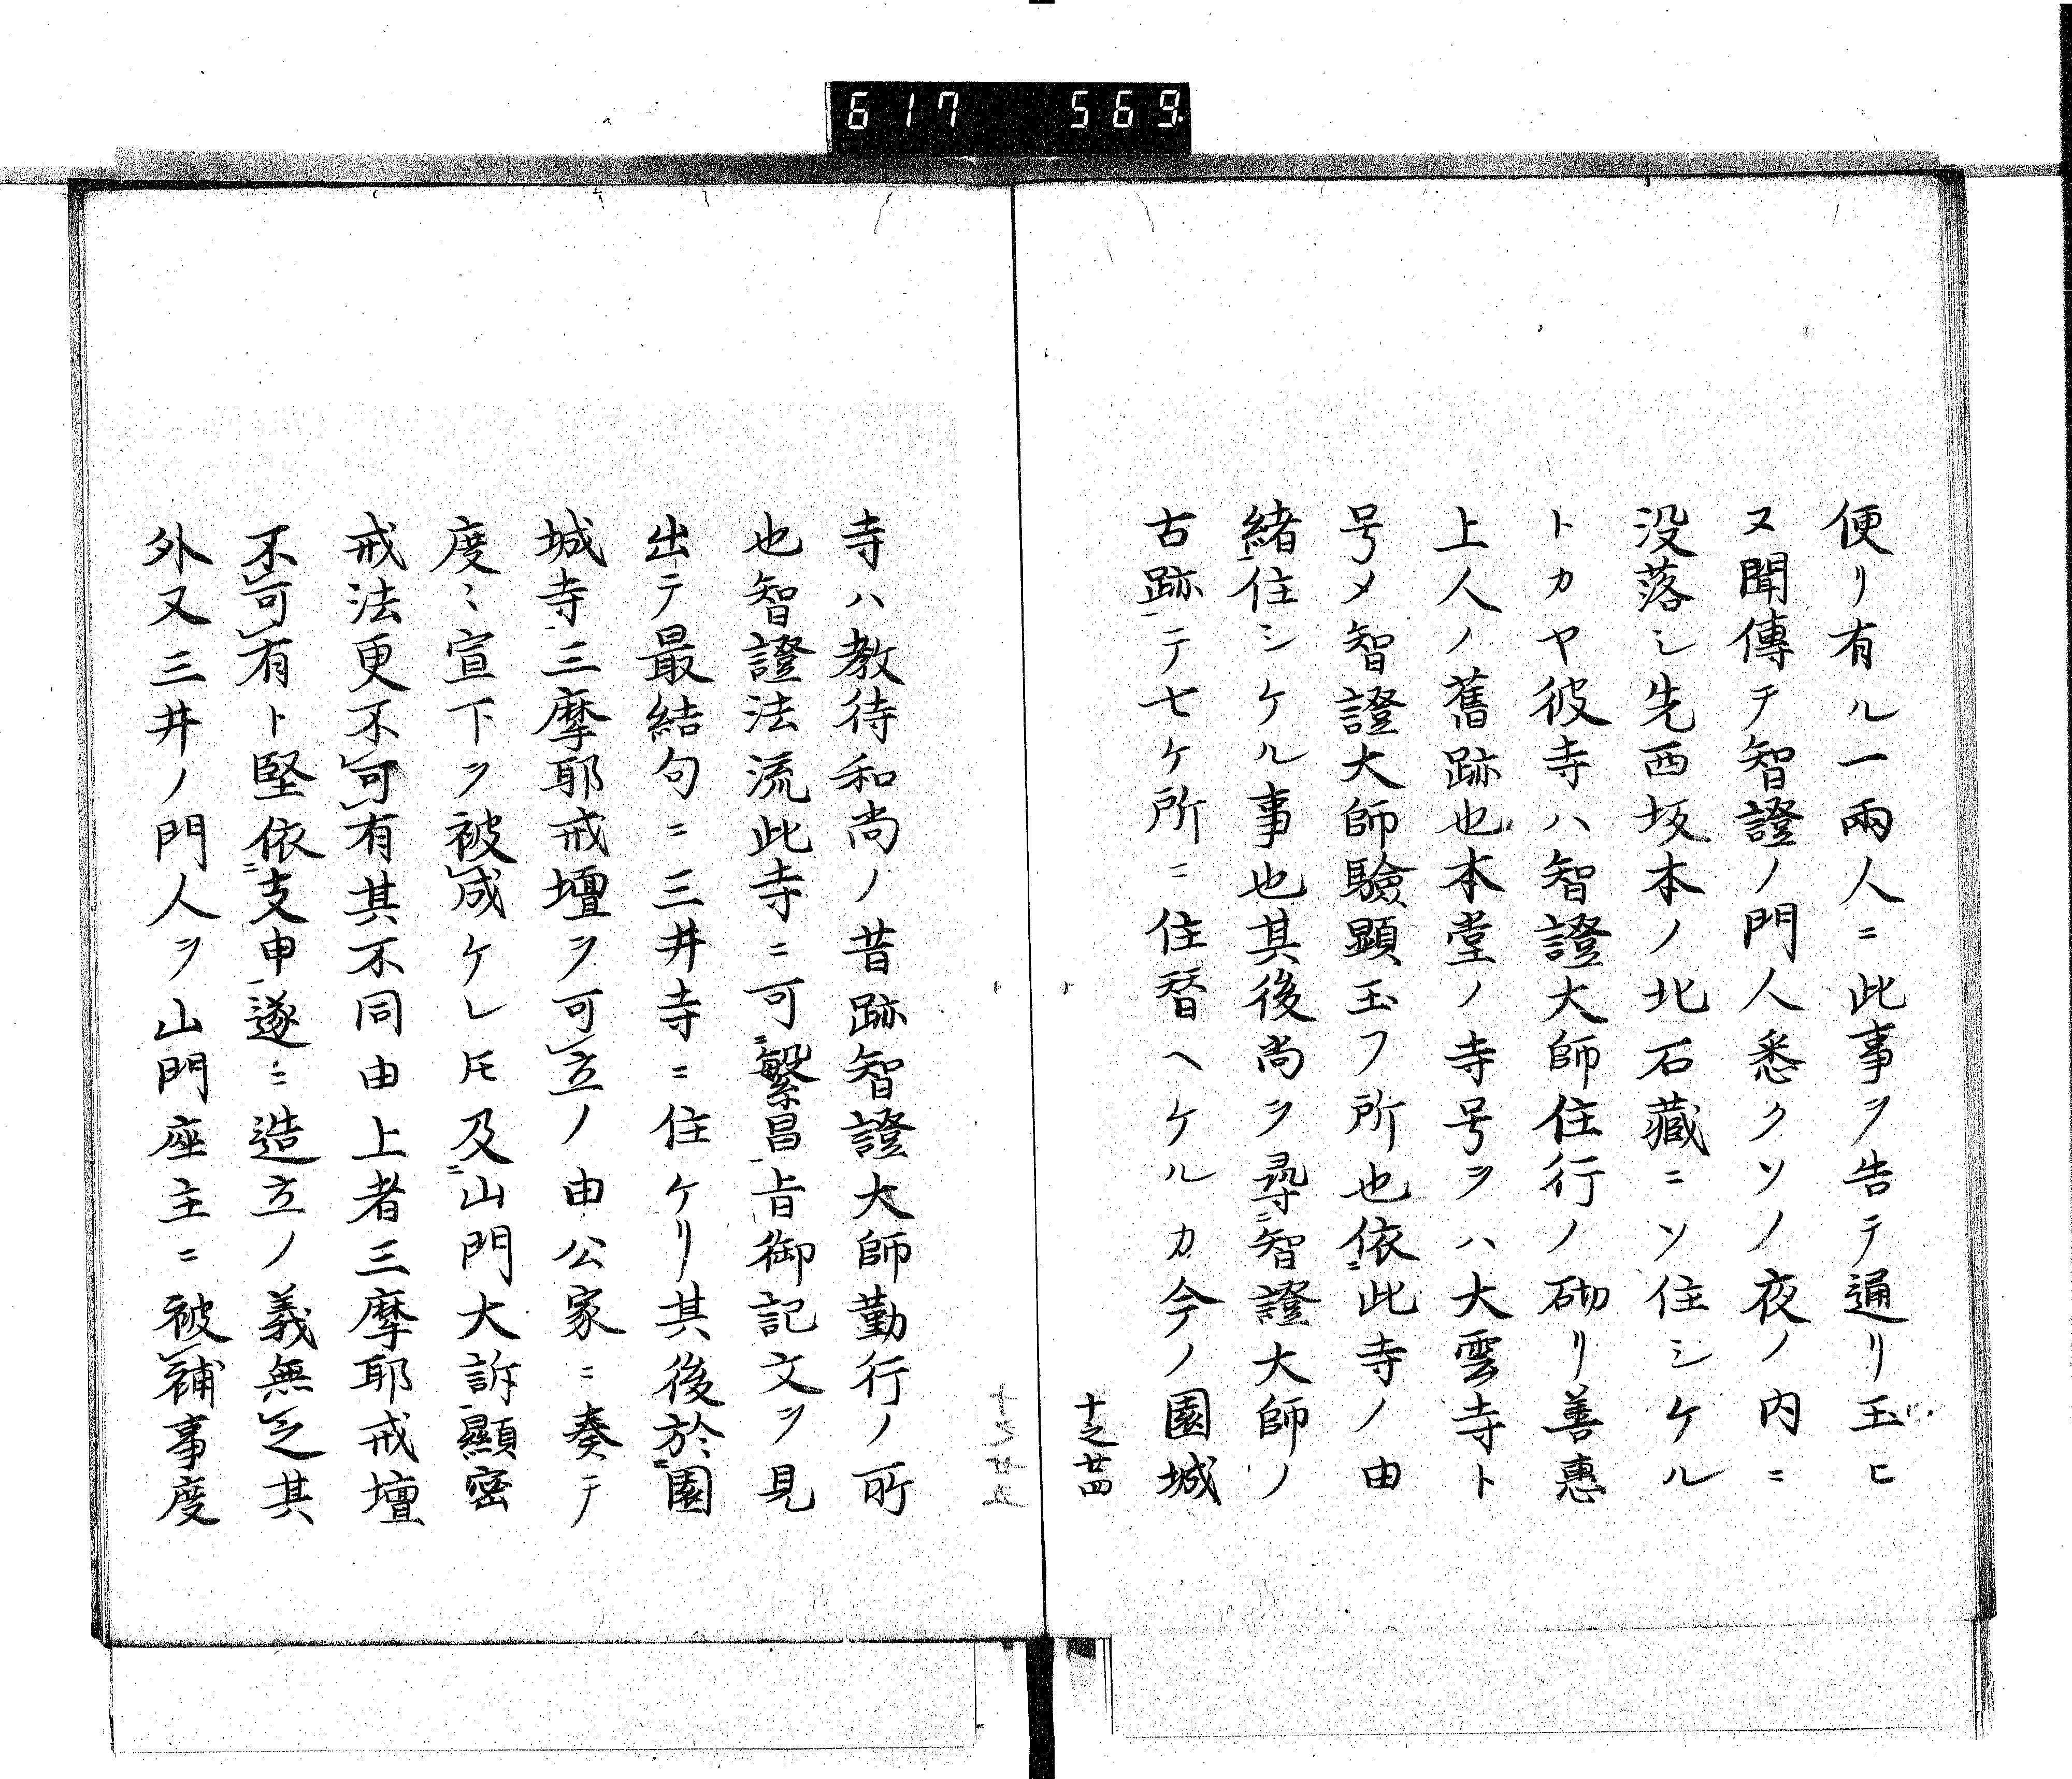 617 569
便リ有ル一兩人ニ此事ヲ告テ通リ玉ヒ
又聞傳テ智證ノ門人悉クソノ夜ノ内ニ
没落シ先西坂本ノ北石藏ニソ住シケル
トカヤ彼寺ハ智證大師住行ノ砌リ善惠
上人ノ舊跡也本堂ノ寺号ヲハ大雲寺ト
号メ智證大師驗顕玉フ所也依ニ此寺ノ由
緒一住シケル事也其後尚ヲ尋ニ智證大師ノ
古跡一テ七ケ所ニ住替ヘケルカ今ノ園城
十之廿四
寺ハ教待和尚ノ昔跡智證大師勤行ノ所
也智證法流此寺ニ可ニ繁昌一旨御記文ヲ見
出テ最結句ニ三井寺ニ住ケリ其後於ニ園
城寺一三摩耶戒壇ヲ可レ立ノ由公家ニ奏テ
度ミ宣下ヲ被レ成ケレ𪜈及ニ山門大訴一顯密
戒法更不レ可レ有其不同由上者三摩耶戒壇
不レ可レ有ト堅依ニ支申一遂ニ造立ノ義無レ之其
外又三井ノ門人ヲ山門座主ニ被レ補事度